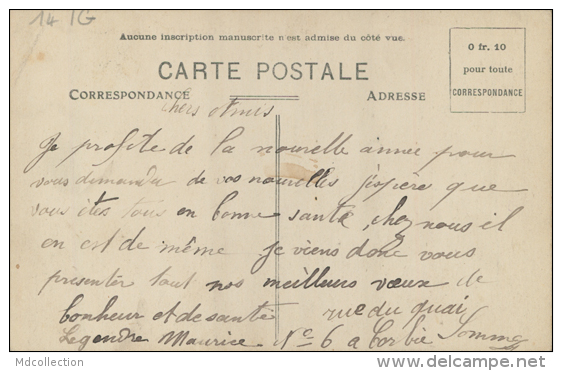 14 IG
Aucune inscription manuscrite n'est admise du côté vue.
CARTE POSTALE
0 fr. 10
pour toute
CORRESPONDANCE
CORRESPONDANCE
ADRESSE
Chers Amis
Je profite de la nouvelle année pour
vous demander de vos nouvelles j'espère que
vous êtes tous en bonne santé, chez nous il
en est de même je viens donc vous
présenter tout nos meilleurs vœux de
bonheur et de santé rue du quai
Legendre Maurice No 6 a Corbie Somme
Mdcollection
delcampe.net